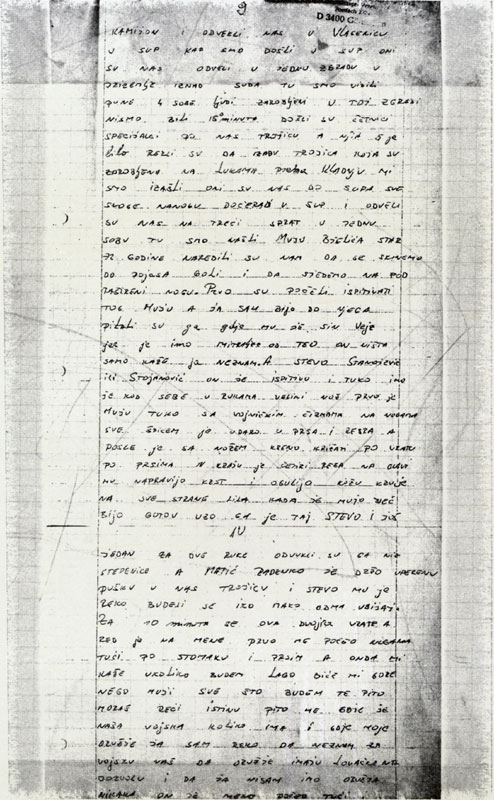 9
D 3400
KAMIJON I ODVEZLI NAS U VLASENICU
U SUP KAD SMO DOŠLI U SUP ONI
SU NAS ODVELI U JEDNU ZGRADU U
PRIZEMLJE IZNAD SUDA TU SMO VIDILI
PUNE 4 SOBE LJUDI ZAROBLJENI U TOJ ZGRADI
NISMO BILI 15 MINUTA DOŠLI SU ČETNICI
SPECIJALCI PO NAS TROJICU A NJIA 5 JE
BILO REKLI SU DA IZAĐU TROJICA KOJA SU
ZAROBLJENA NA LUKAMA PREMA KLADNJU MI
SMO IZAŠLI ONI SU NAS DO SUPA SVE
NANOGU DOĆERALI U SUP I ODVELI
SU NAS NA TREĆI SPRAT U JEDNU
SOBU TU SMO NAŠLI MUJU STAR
75 GODINE NAREDILI SU NAM DA SE SKINEMO
DO POJASA GOLI I DA SJEDEMO NA POD
RAŠIRENI NOGU PRVO SU POČELI ISPITIVATI
TOG MUJU A JA SAM BIJO DO NJEGA
PITALI SU GA GDJE MU JE SIN
JER JE IMO MITRALJEZ OD TEO ON NIŠTA
SAMO KAŽE JA NEZNAM. A STEVO STANOJEVIĆ
ILI STOJANOVIĆ ON JE ISPITIVO I TUKO IMO
JE KOD SEBE U RUKAMA VELIKI NOŽ PRVO JE
MUJU TUKO SA VOJNIČKIM ČIZMAMA NA NOGAMA
SVE ŠPICEM JE UDARO U PRSA I REBRA A
POSLE JE SA NOŽEM KRENU PO VRATU
PO PRSIMA N KRAJU JE ČETIRI REZA NA GLAVI
MU NAPRAVIJO KRST I OGULIJO KOŽU KRVIJE
NA SVE STRANE LILA KADA JE MUJO VEĆ
BIJO GOTOV UZO GA JE TAJ STEVO I JOŠ
10
JEDAN ZA DVE RUKE ODVUKLI SU GA NIZ
STEPENICE A MATIĆ RADENKO JE DRŽO UPERENU
PUŠKU U NAS TROJICU I STEVO MU JE
REKO BUDELI SE IKO MAKO ODMA UBIJAJ.
ZA 10 MINUTA SE OVA DVOJICA VRATE A
RED JE NA MENE PRVO ME POČEO NOGAMA
TUĆI PO STOMAKU I PRSIM A ONDA MI
KAŽE UKOLIKO BUDEM LAGO BIĆE MI GORE
NEGO MUJI SVE ŠTO BUDEM TE PITO
MORAŠ REĆI ISTINU PITO ME GDJE JE
NAŠA VOJSKA KOLIKO IMA I GDJE MOJE
ORUŽJE JA SAM REKO DA NEZNAM ZA
VOJSKU VEĆ DA ORUŽJE IMAJU LOVAČKE NA
DOZVOLU I DA JA NISAM IMO ORUŽJA
NIKAKA ON JE MENE POČEO TUĆI